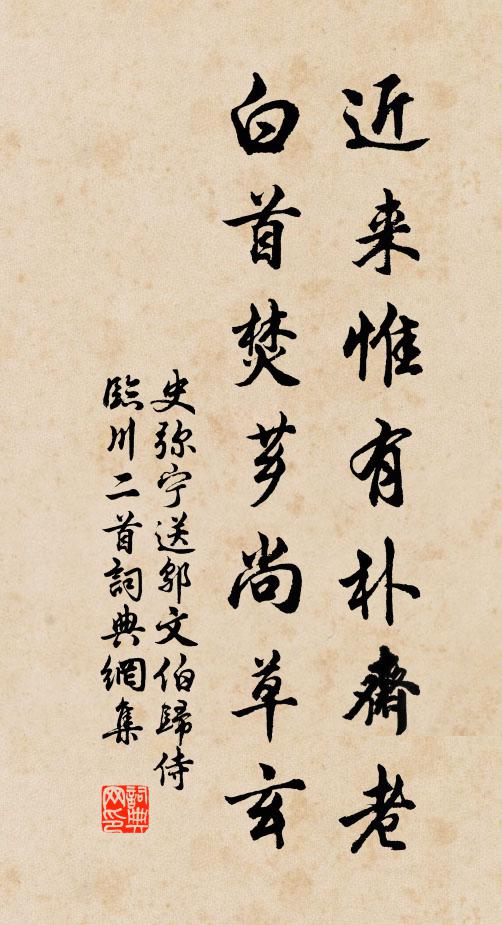 近来惟有朴齋老
白首焚芗尚草玄
史弥宁送邬文伯歸侍
臨川二首詞典網集
詞典网印